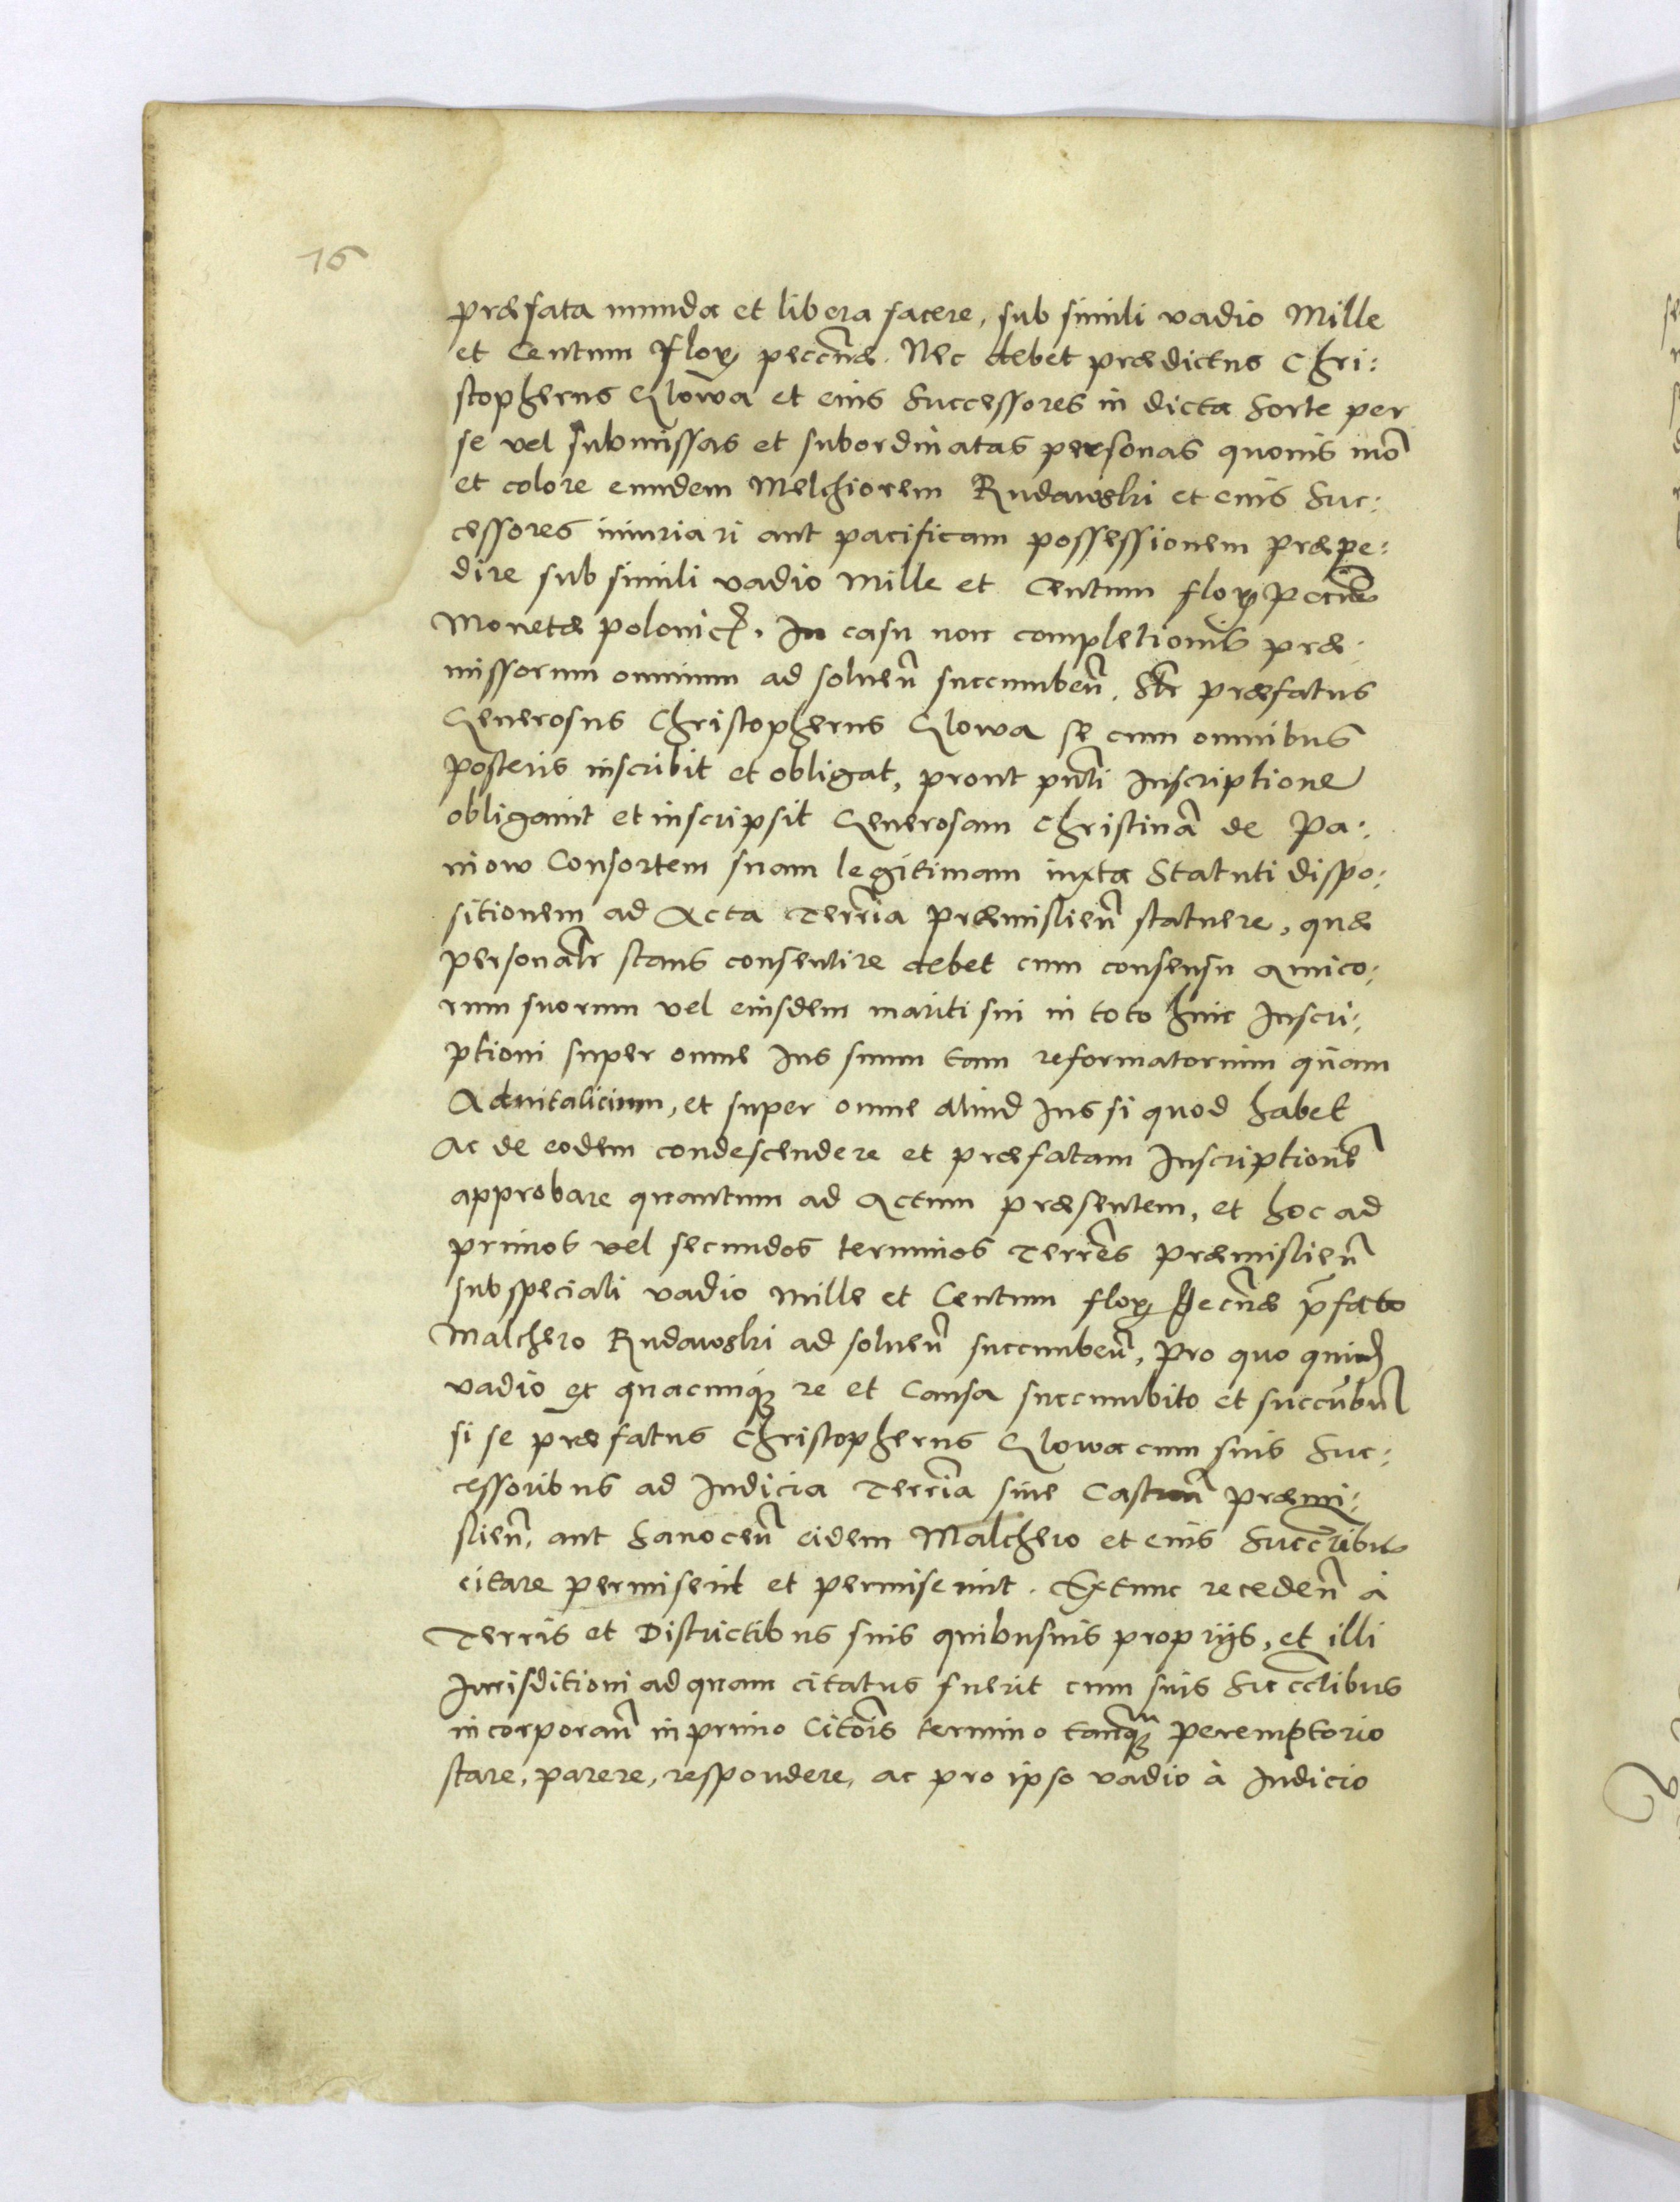 16
præfata munda et libera facere, sub simili vadio Mille
et Centum Flor. peccñæ. Nec debet prædictus Chri:
stopherus Glowa et eius Successores in dicta Sorte per
se vel submissas et subordinatas personas quouis mõ
et colore eundem Melchiorem Rudawski et eius Suc:
cessores iniuriari aut pacificam possessionem præpe:
dire sub simili vadio Mille et Centum flor. Peccñiæ
Monetæ polonic. In casu non completionis præ:
missorum omnium ad soluen̄ succumben̄. præfatus
Generosus Christopherus Glowa se cum omnibus
posteris inscribit et obligat, prout pñti Inscriptione
obligauit et inscripsit Generosam Christinã de Pa:
niow Consortem suam legitimam iuxta Statuti dispo:
sitionem ad Acta Terria Præmislien̄ statuere, quæ
personalr stans consentire debet cum consensu Amico:
rum suorum vel eiusdem mariti sui in toto huic Inscri:
ptioni super omne Ius suum tam reformatorium quam
Aduitalicium, et super omne aliud Ius si quod habet
Ac de eodem condescendere et præfatam Inscriptionẽ
approbare quantum ad Actum præsentem, et hoc ad
primos vel secundos terminos Terres Præmislien̄
sub speciali vadio Mille et Centum flor. Pecñæ p̄fato
Malchero Rudawski ad soluen̄ succumben̄, Pro quo quid.
vadio et quacunq3 re et Causa succumbito et succūbn̄
si se præfatus Christopherus Glowa cum suis Suc:
cessoribus ad Iudicia Terria siue Castren̄ Præmi:
slien̄, aut Sanocen̄ eidem Malchero et eius Succ̄ribus
citare permiserit et permiserint. Extunc receden̄ à
Terris et Districtibus suis quibusuis proprijs, et illi
Iurisditioni ad quam citatus fuerit cum suis Succ̄ribus
incorporan̄ in primo Citõis termino tanq3 peremptorio
stare, parere, respondere, ac pro ipso vadio à Iudicio